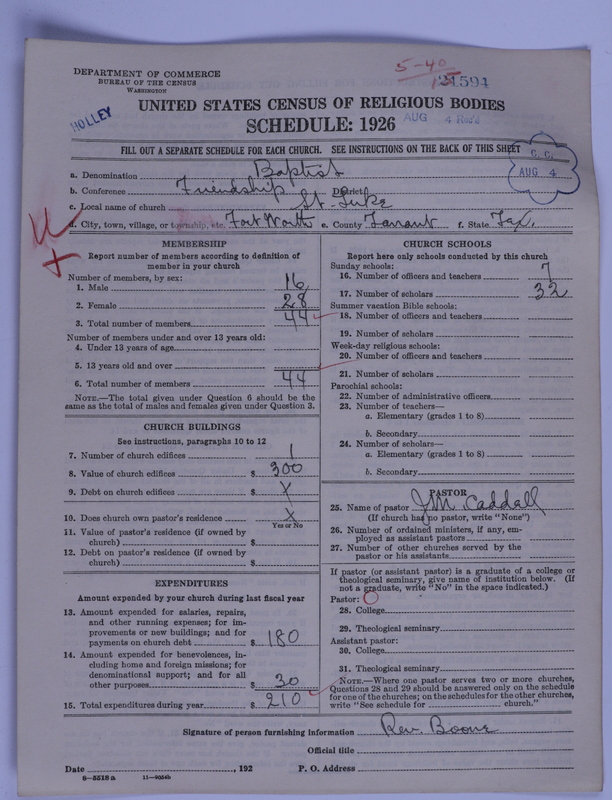 5-40
DEPARTMENT OF COMMERCE
BUREAU OF THE CENSUS
WASHINGTON
21594
HOLLEY
UNITED STATES CENSUS OF RELIGIOUS BODIES
SCHEDULE: 1926
AUG 4 Rec'd
FILL OUT A SEPARATE SCHEDULE FOR EACH CHURCH. SEE INSTRUCTIONS ON THE BACK OF THIS SHEET
AUG 4
a. Denomination Baptist
b. Conference Friendship District
c. Local name of church St. Luke
d. City, town, village, or township, etc. Fort Worth e. County Tarrant f. State Tex.
MEMBERSHIP
Report number of members according to definition of
member in your church
Number of members, by sex:
1. Male 16
2. Female 28
3. Total number of members 44
Number of members under and over 13 years old:
4. Under 13 years of age
5. 13 years old and over
6. Total number of members 44
NOTE.—The total given under Question 6 should be the
same as the total of males and females given under Question 3.
CHURCH BUILDINGS
See instructions, paragraphs 10 to 12
7. Number of church edifices 1
8. Value of church edifices $ 300
9. Debt on church edifices $ X
10. Does church own pastor's residence X
Yes or No
11. Value of pastor's residence (if owned by
church) $
12. Debt on pastor's residence (if owned by
church) $
EXPENDITURES
Amount expended by your church during last fiscal year
13. Amount expended for salaries, repairs,
and other running expenses; for im-
provements or new buildings; and for
payments on church debt $ 180
14. Amount expended for benevolences, in-
cluding home and foreign missions; for
denominational support; and for all
other purposes $ 30
15. Total expenditures during year $ 210
CHURCH SCHOOLS
Report here only schools conducted by this church
Sunday schools:
16. Number of officers and teachers 7
17. Number of scholars 32
Summer vacation Bible schools:
18. Number of officers and teachers
19. Number of scholars
Week-day religious schools:
20. Number of officers and teachers
21. Number of scholars
Parochial schools:
22. Number of administrative officers
23. Number of teachers—
a. Elementary (grades 1 to 8)
b. Secondary
24. Number of scholars—
a. Elementary (grades 1 to 8)
b. Secondary
PASTOR
25. Name of pastor J.M. Caddall
(If church has no pastor, write "None")
26. Number of ordained ministers, if any, em-
ployed as assistant pastors
27. Number of other churches served by the
pastor or his assistants
If pastor (or assistant pastor) is a graduate of a college or
theological seminary, give name of institution below. (If
not a graduate, write "No" in the space indicated.)
Pastor:
28. College
29. Theological seminary
Assistant pastor:
30. College
31. Theological seminary
NOTE.—Where one pastor serves two or more churches,
Questions 28 and 29 should be answered only on the schedule
for one of the churches; on the schedules for the other churches,
write "See schedule for church."
Signature of person furnishing information Rev. Boone
Official title
Date , 192 P. O. Address
8-5518a 11-9054b